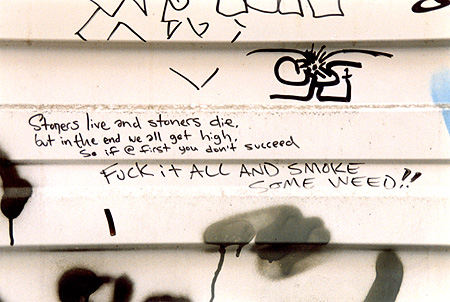 Stoners live and stoners die.
but in the end we all get high,
So if @ first you don't succeed
FUCK it ALL AND SMOKE
SOME WEED!!